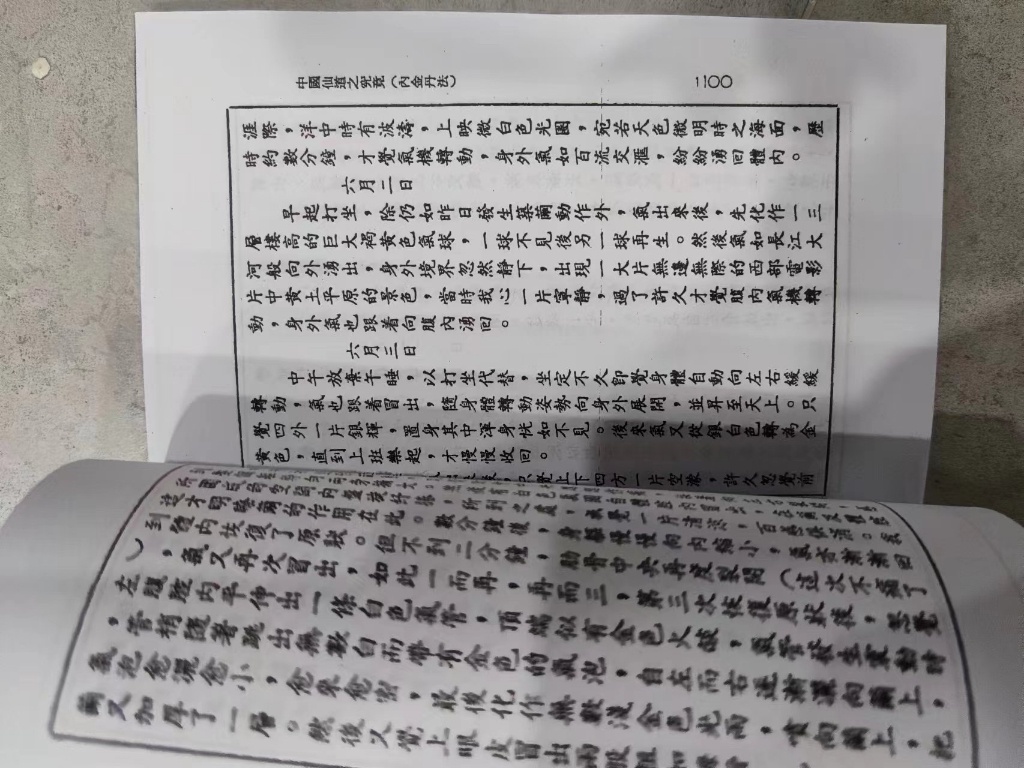 中國仙道之究竟（內金丹法）
二〇〇
涯際，洋中時有波濤，上映微白色光圈，宛若天色微明時之海面，歷
時約數分鐘，才覺氣機轉動，身外氣如百流交滙，紛紛湧回體內。
六月二日
早起打坐，除仍如昨日發生築繭動作外，氣出來後，先化作一三
層樓高的巨大褐黃色氣球，一球不見後另一球再生。然後氣如長江大
河般向外湧出，身外境界忽然靜下，出現一大片無邊無際的西部電影
片中黃土平原的景色，當時我心一片寧靜，過了許久才覺腹內氣機轉
動，身外氣也跟着向腹內湧回。
六月三日
中午放棄午睡，以打坐代替，坐定不久即覺身體自動向左右緩緩
轉動，氣也跟着冒出，隨身體轉動姿勢向身外展開，並昇至天上。只
覺四外一片銀輝，置身其中渾身恍如不見。後來氣又從銀白色轉為金
黃色，直到上班樂起，才慢慢收回。
覺上下四方一片空寂，許久忽覺前
所到之處，感覺一片清涼，百
這才明瞭繭的作用在此。數分鐘後，身軀慢慢向內縮小，氣亦漸漸回
到體內恢復了原狀。但不到二分鐘，肋骨中央再度裂開（這次不痛了
），氣又再次冒出，如此一而再，再而三，第三次恢復原狀後，忽覺
左腹腔內平伸出一條白色氣管，頂端似有金色火燄，氣管發生震動時
，管梢隨著跳出無數白而帶有金色的氣泡，自左而右逐漸灑向繭上，
氣泡愈灑愈小，愈來愈密，最後化作無數淺金色光雨，噴向繭上，把
繭又加厚了一層。然後又覺上眼皮冒出兩股